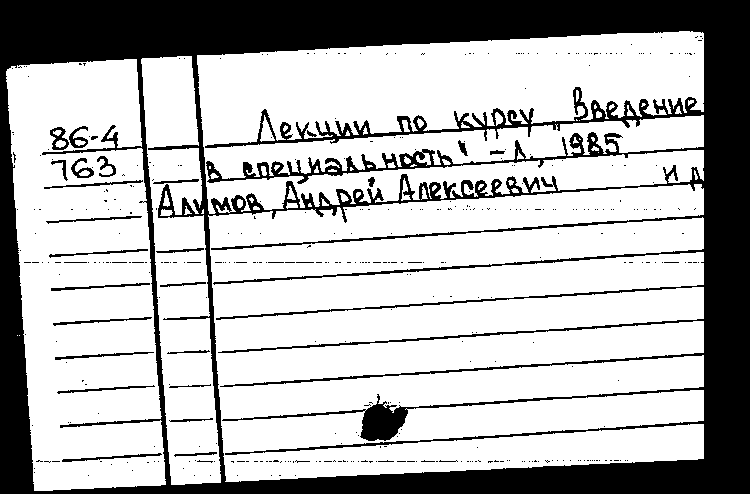 86-4 Лекции по курсу „Введение
763 в специальность" - Л., 1985.
Алимов, Андрей Алексеевич и д